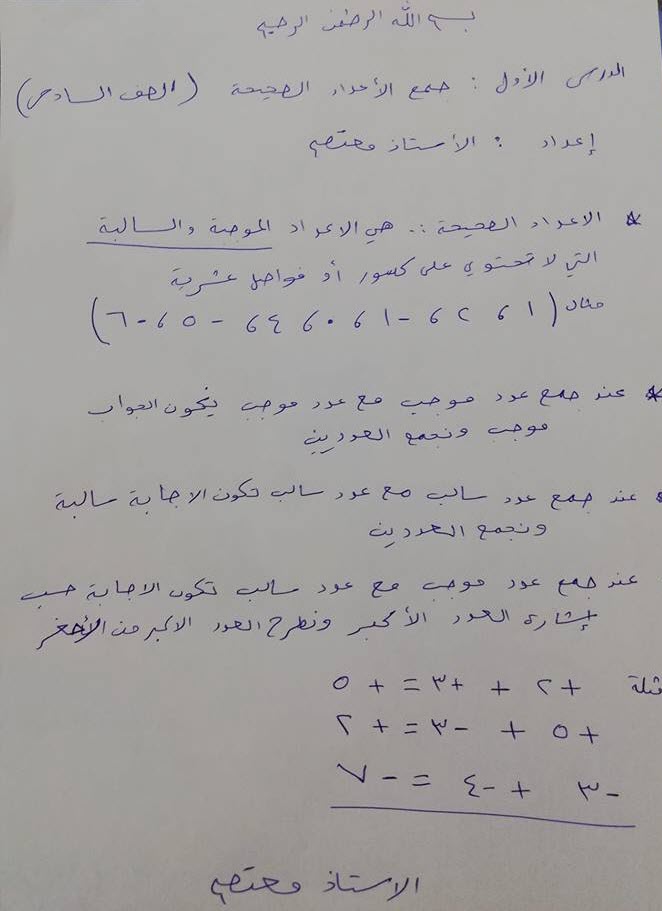 بسم الله الرحمن الرحيم
الدرس الأول : جمع الأعداد الصحيحة (الصف السادس)
إعداد : الأستاذ معتصم
* الاعداد الصحيحة :. هي الاعداد الموجبة والسالبة
التي لا تحتوي على كسور أو فواصل عشرية
مثال (١ ، ٢ ، -١ ، ٠ ، ٤ ، -٥ ، -٦)
* عند جمع عدد موجب مع عدد موجب يكون الجواب
موجب ونجمع العددين
* عند جمع عدد سالب مع عدد سالب تكون الاجابة سالبة
ونجمع العددين
عند جمع عدد موجب مع عدد سالب تكون الاجابة حسب
إشارة العدد الأكبر ونطرح العدد الاكبر من الأصغر
مثلة +٢ + +٣ = +٥
+٥ + -٣ = +٢
-٣ + -٤ = -٧
الاستاذ معتصم